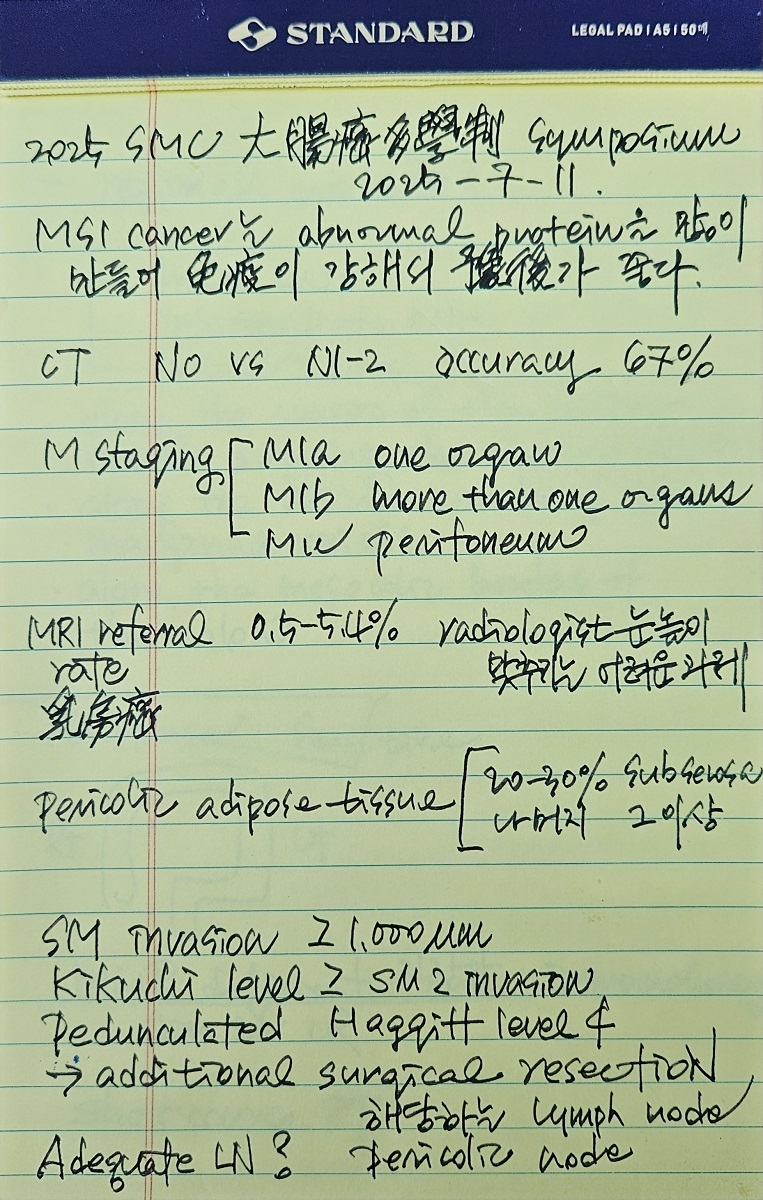 STANDARD
LEGAL PAD | A5 | 50매
2025 SMC 大腸癌多學制 symposium
2025-7-11.
MSI cancer는 abnormal protein을 많이
만들어 免疫이 강해서 豫後가 좋다.
CT N0 vs N1-2 accuracy 67%
M staging M1a one organ
M1b more than one organs
M1c peritoneum
MRI referral 0.5-5.4% radiologist 눈높이
rate 맞추기는 어려운 과제
乳房癌
pericolic adipose tissue 20-30% subserosa
나머지 그 이상
SM invasion ≥ 1,000 μm
Kikuchi level ≥ SM2 invasion
Pedunculated Haggitt level 4
→ additional surgical resection
해당하는 lymph node
Adequate LN? pericolic node